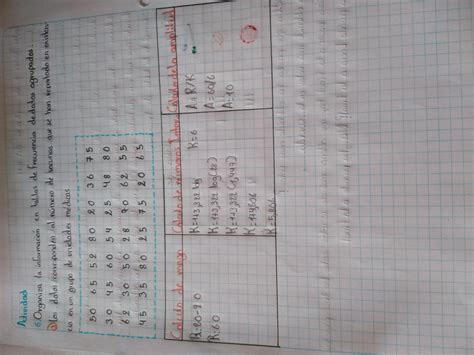 Actividad
6. Organiza la información en tablas de frecuencia de datos agrupados.
a) Los datos corresponden al número de vacunas que se han reportado en existen-
cia en un grupo de unidades médicas
50 65 52 80 20 36 75
30 45 60 54 25 48 80
62 30 50 28 70 62 55
45 35 80 25 75 20 65
Calculo de rango
R=80-20
R=60
K=1+3,322 log
K=1+3,322 log(28)
K=1+3,322 (1,447)
K=1+4,806
K=5,806
K=6
Calculo de la amplitud
A=R/K
A=60/6
A=10